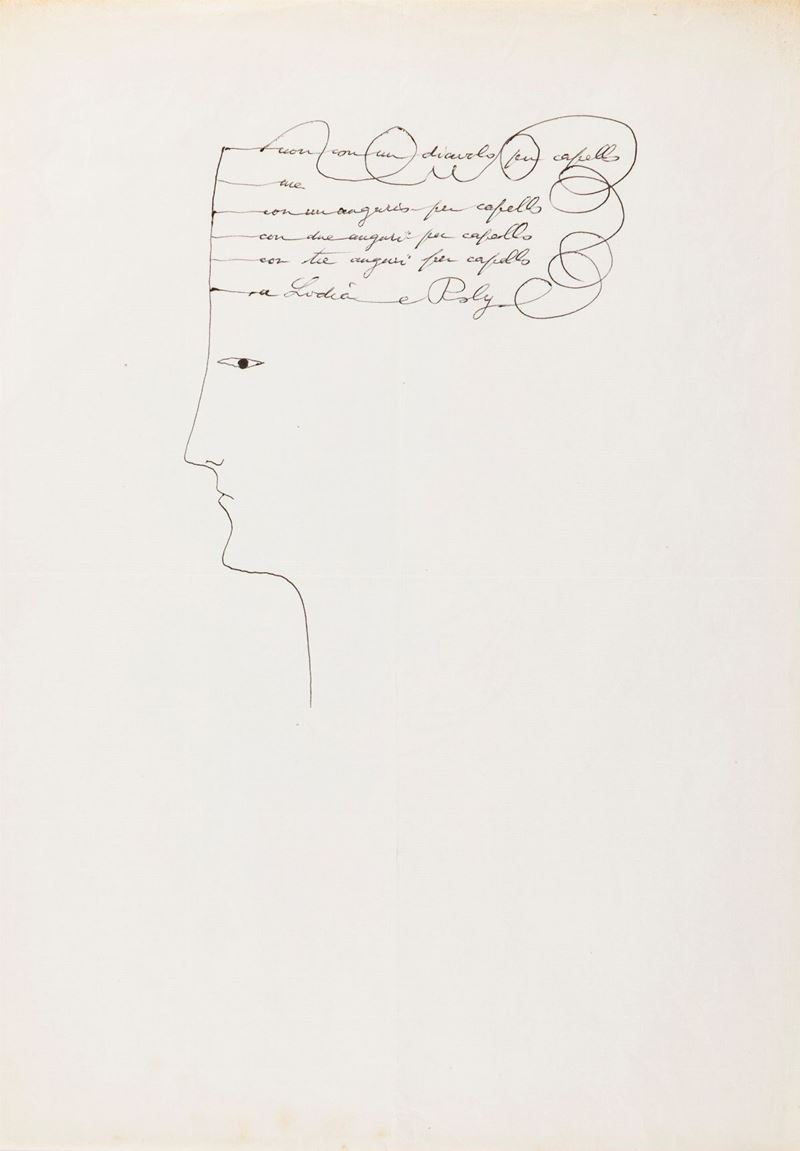 non con un diavolo per capello
ma
con un augurio per capello
con due auguri per capello
con tre auguri per capello
a e Poly